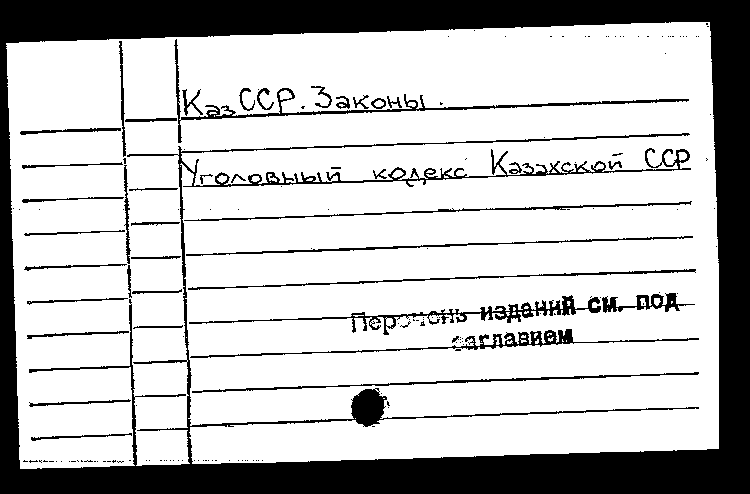 КазССР. Законы.
Уголовный кодекс Казахской ССР
Перечень изданий см. под
заглавием